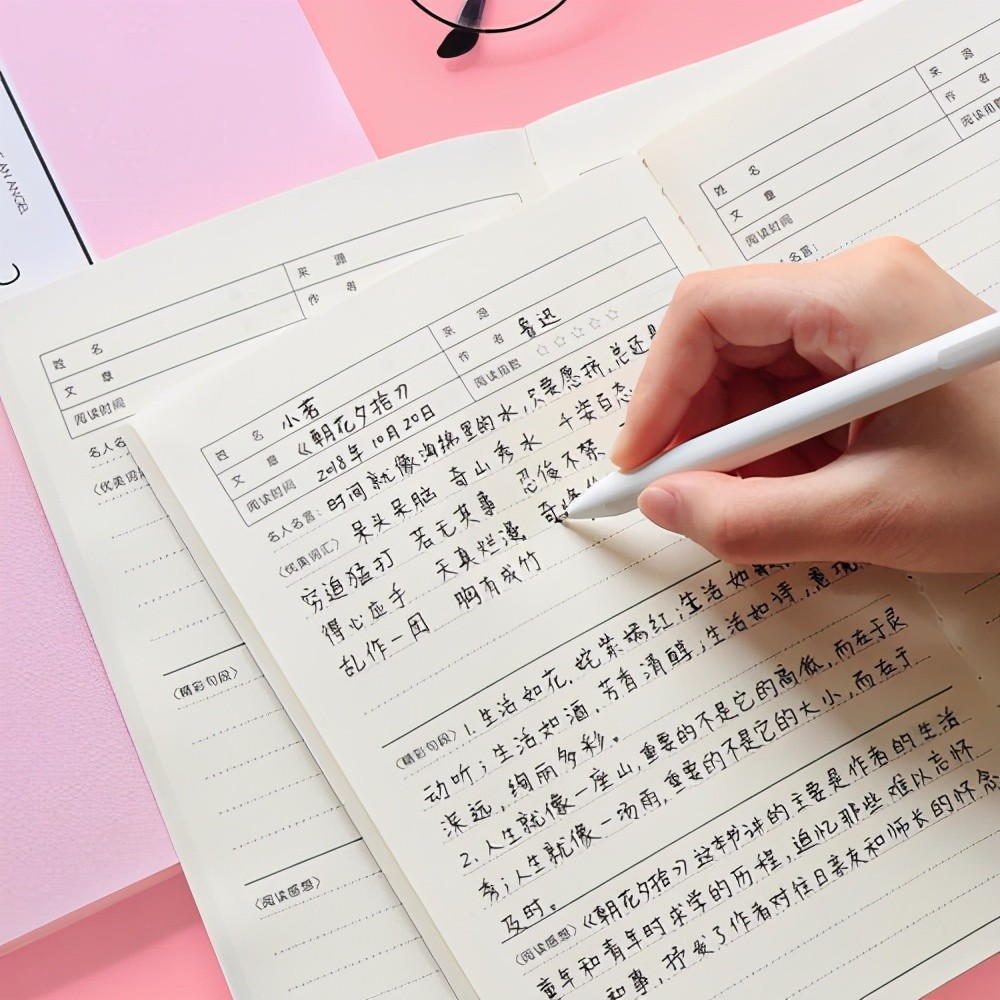 AN ANGEL
姓 名
文 章
阅读时间
来 源
作 者
名人名
〈优美词
〈精彩句段〉
〈阅读感想〉
姓 名 小茗
文 章 《朝花夕拾》
阅读时间 2018年10月20日
来 源
作 者 鲁迅
阅读指数 ☆☆☆☆☆
名人名言: 时间就像海绵里的水,只要愿挤,总还是
〈优美词汇〉 呆头呆脑 奇山秀水 千姿百态
穷追猛打 若无其事 忍俊不禁
得心应手 天真烂漫 奇峰
乱作一团 胸有成竹
〈精彩句段〉 1.生活如花,姹紫嫣红;生活如
动听;生活如酒,芳香清醇;生活如诗,意境
深远,绚丽多彩。
2.人生就像一座山,重要的不是它的高低,而在于灵
秀;人生就像一场雨,重要的不是它的大小,而在于
及时。
〈阅读感想〉 《朝花夕拾》这本书讲的主要是作者的生活
童年和青年时求学的历程,追忆那些难以忘怀
和事,抒发了作者对往日亲友和师长的怀念
姓 名
文 章
阅读时间
来 源
作 者
阅读指数
人名言: